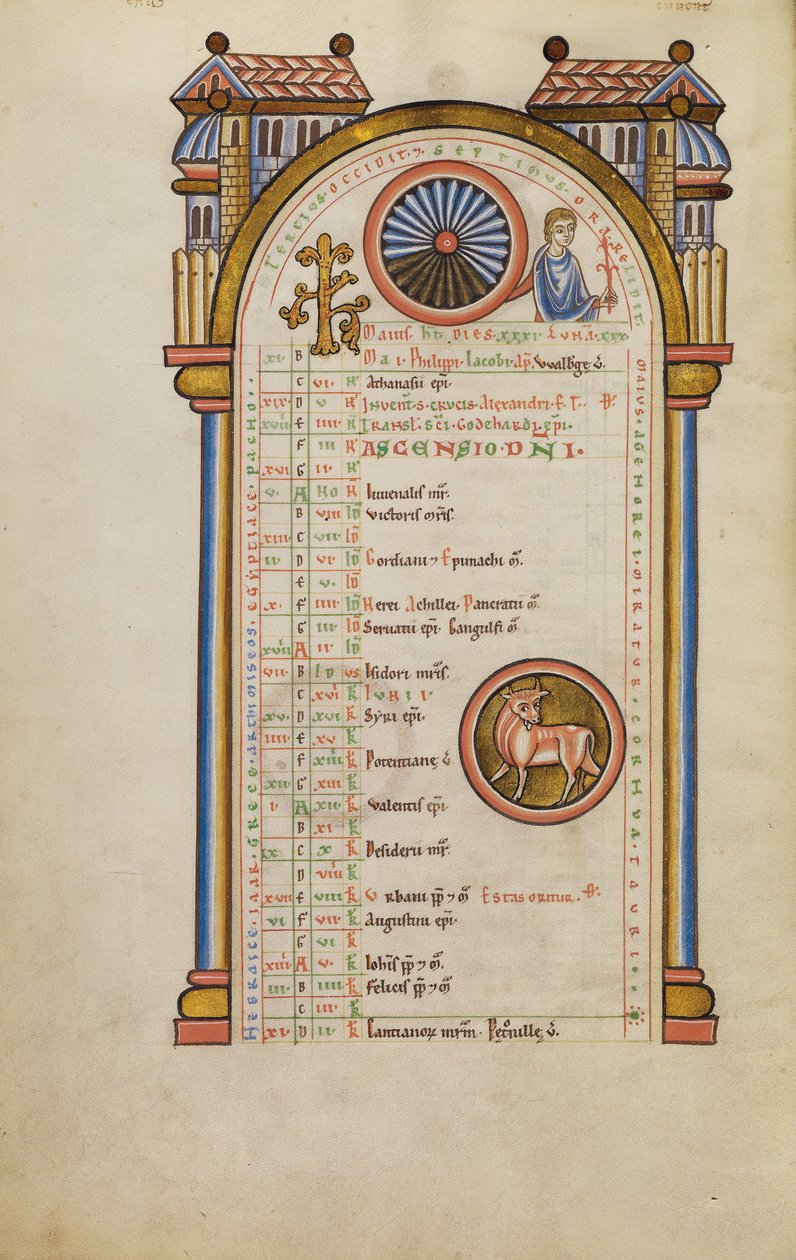 Tercius · occidit · 7 · septimus · ora · relidit ·
Maius · ht · dies · xxxi · Luna · xxx ·
xi · B Mai · Philippi · Iacobi · ap̄ · Walb̄ge v̄ ·
C vi · N̄ Athanasii ep̄i ·
xix · D v N̄ Invent̄ · s · crucis · Alexandri · E · T ·
viii E iiii N̄ Transl̄ · sc̄i · Godehardi · ep̄i ·
F iii N̄ ASCENSIO · DNI ·
xvi G ii · N̄
v · A NO N̄ Iuvenalis mr̄ ·
B viii Id̄ Victoris mr̄is ·
xiii C vii Id̄
ii D vi · Id̄ Gordiani 7 Epimachi m̄ ·
E v · Id̄
x · F iiii Id̄ Nerei Achillei · Pancratii m̄
G iii Id̄ Servatii ep̄i · Gangulfi m̄
xviii A ii · Id̄
vii · B Id us Isidori mr̄is ·
C xvii k̄ Iunii ·
xv · D xvi k̄ Syri ep̄i ·
iiii E xv k̄
F xiiii k̄ Potentiane v̄
xii G xiii k̄
i · A xii k̄ Valentis ep̄i ·
B xi k̄
ix C x k̄ Desiderii mr̄ ·
D viiii k̄
xvii E viii k̄ Urbani pp̄ 7 m̄ Estas oritur ·
vi F vii k̄ Augustini ep̄i ·
G vi k̄
xiiii A v · k̄ Ioh̄is pp̄ 7 m̄ ·
iii · B iiii k̄ Felicis pp̄ 7 m̄
C iii · k̄
xi · D ii · k̄ Cantianoꝝ mr̄m · Petronille v̄ ·
Hebraice · iaar · Grece · arthmiseos · egyptiace · pacho · ·
Maius · agenorei · miratur · cornua · tauri · ·